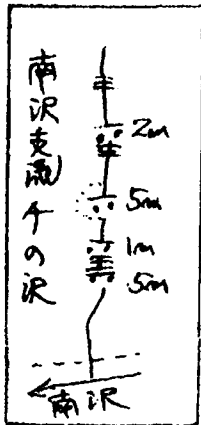 南沢支流チの沢
2m
5m
1m
5m
南沢